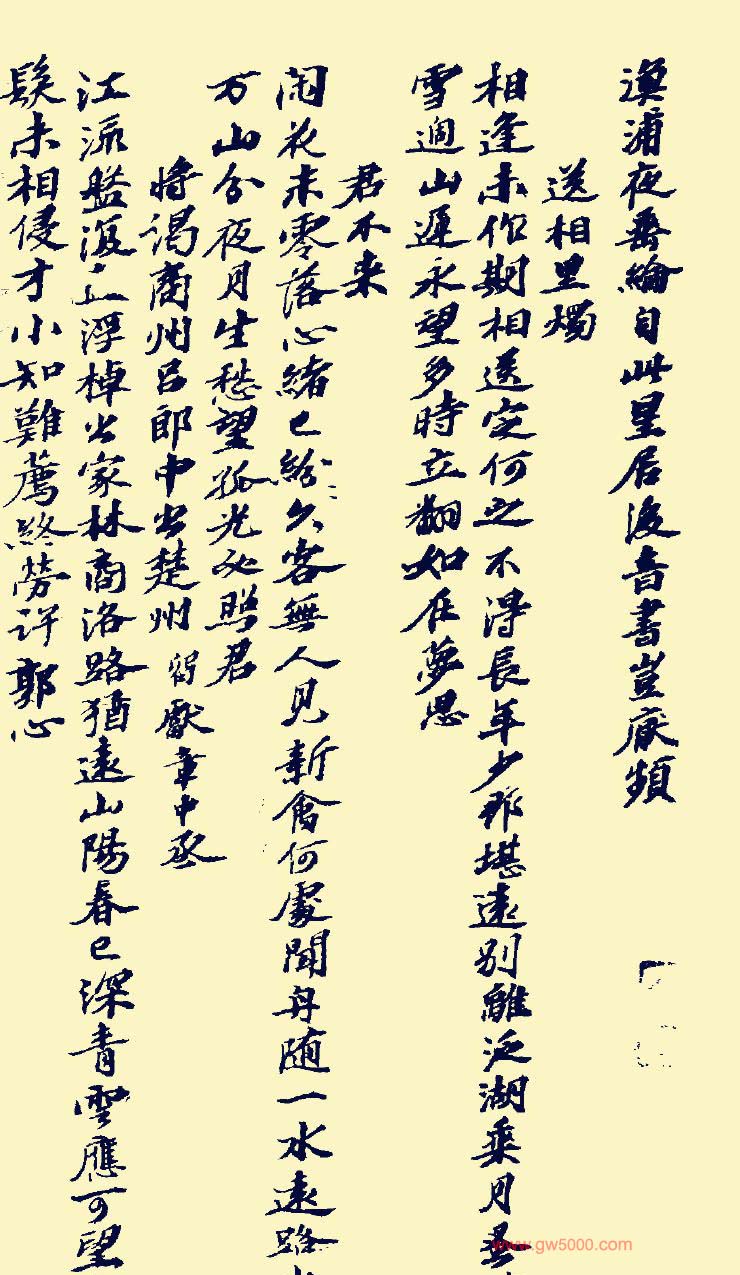 漁浦夜垂綸自此星居後音書豈厭頻
送相里燭
相逢未作期相送定何之不得長年少那堪遠別離泛湖乘月早
雪過山遲永望多時立翻如在夢思
君不来
閑花未零落心緒已紛久客無人見新禽何處聞舟随一水遠路
万山分夜月生愁望孤光必照君
将谒商州吕郎中出楚州留獻章中丞
江流盤復浮棹出家林商洛路猶遠山陽春已深青雲應可望
髮未相侵才小知難薦終勞許郭心
www.gw5000.com